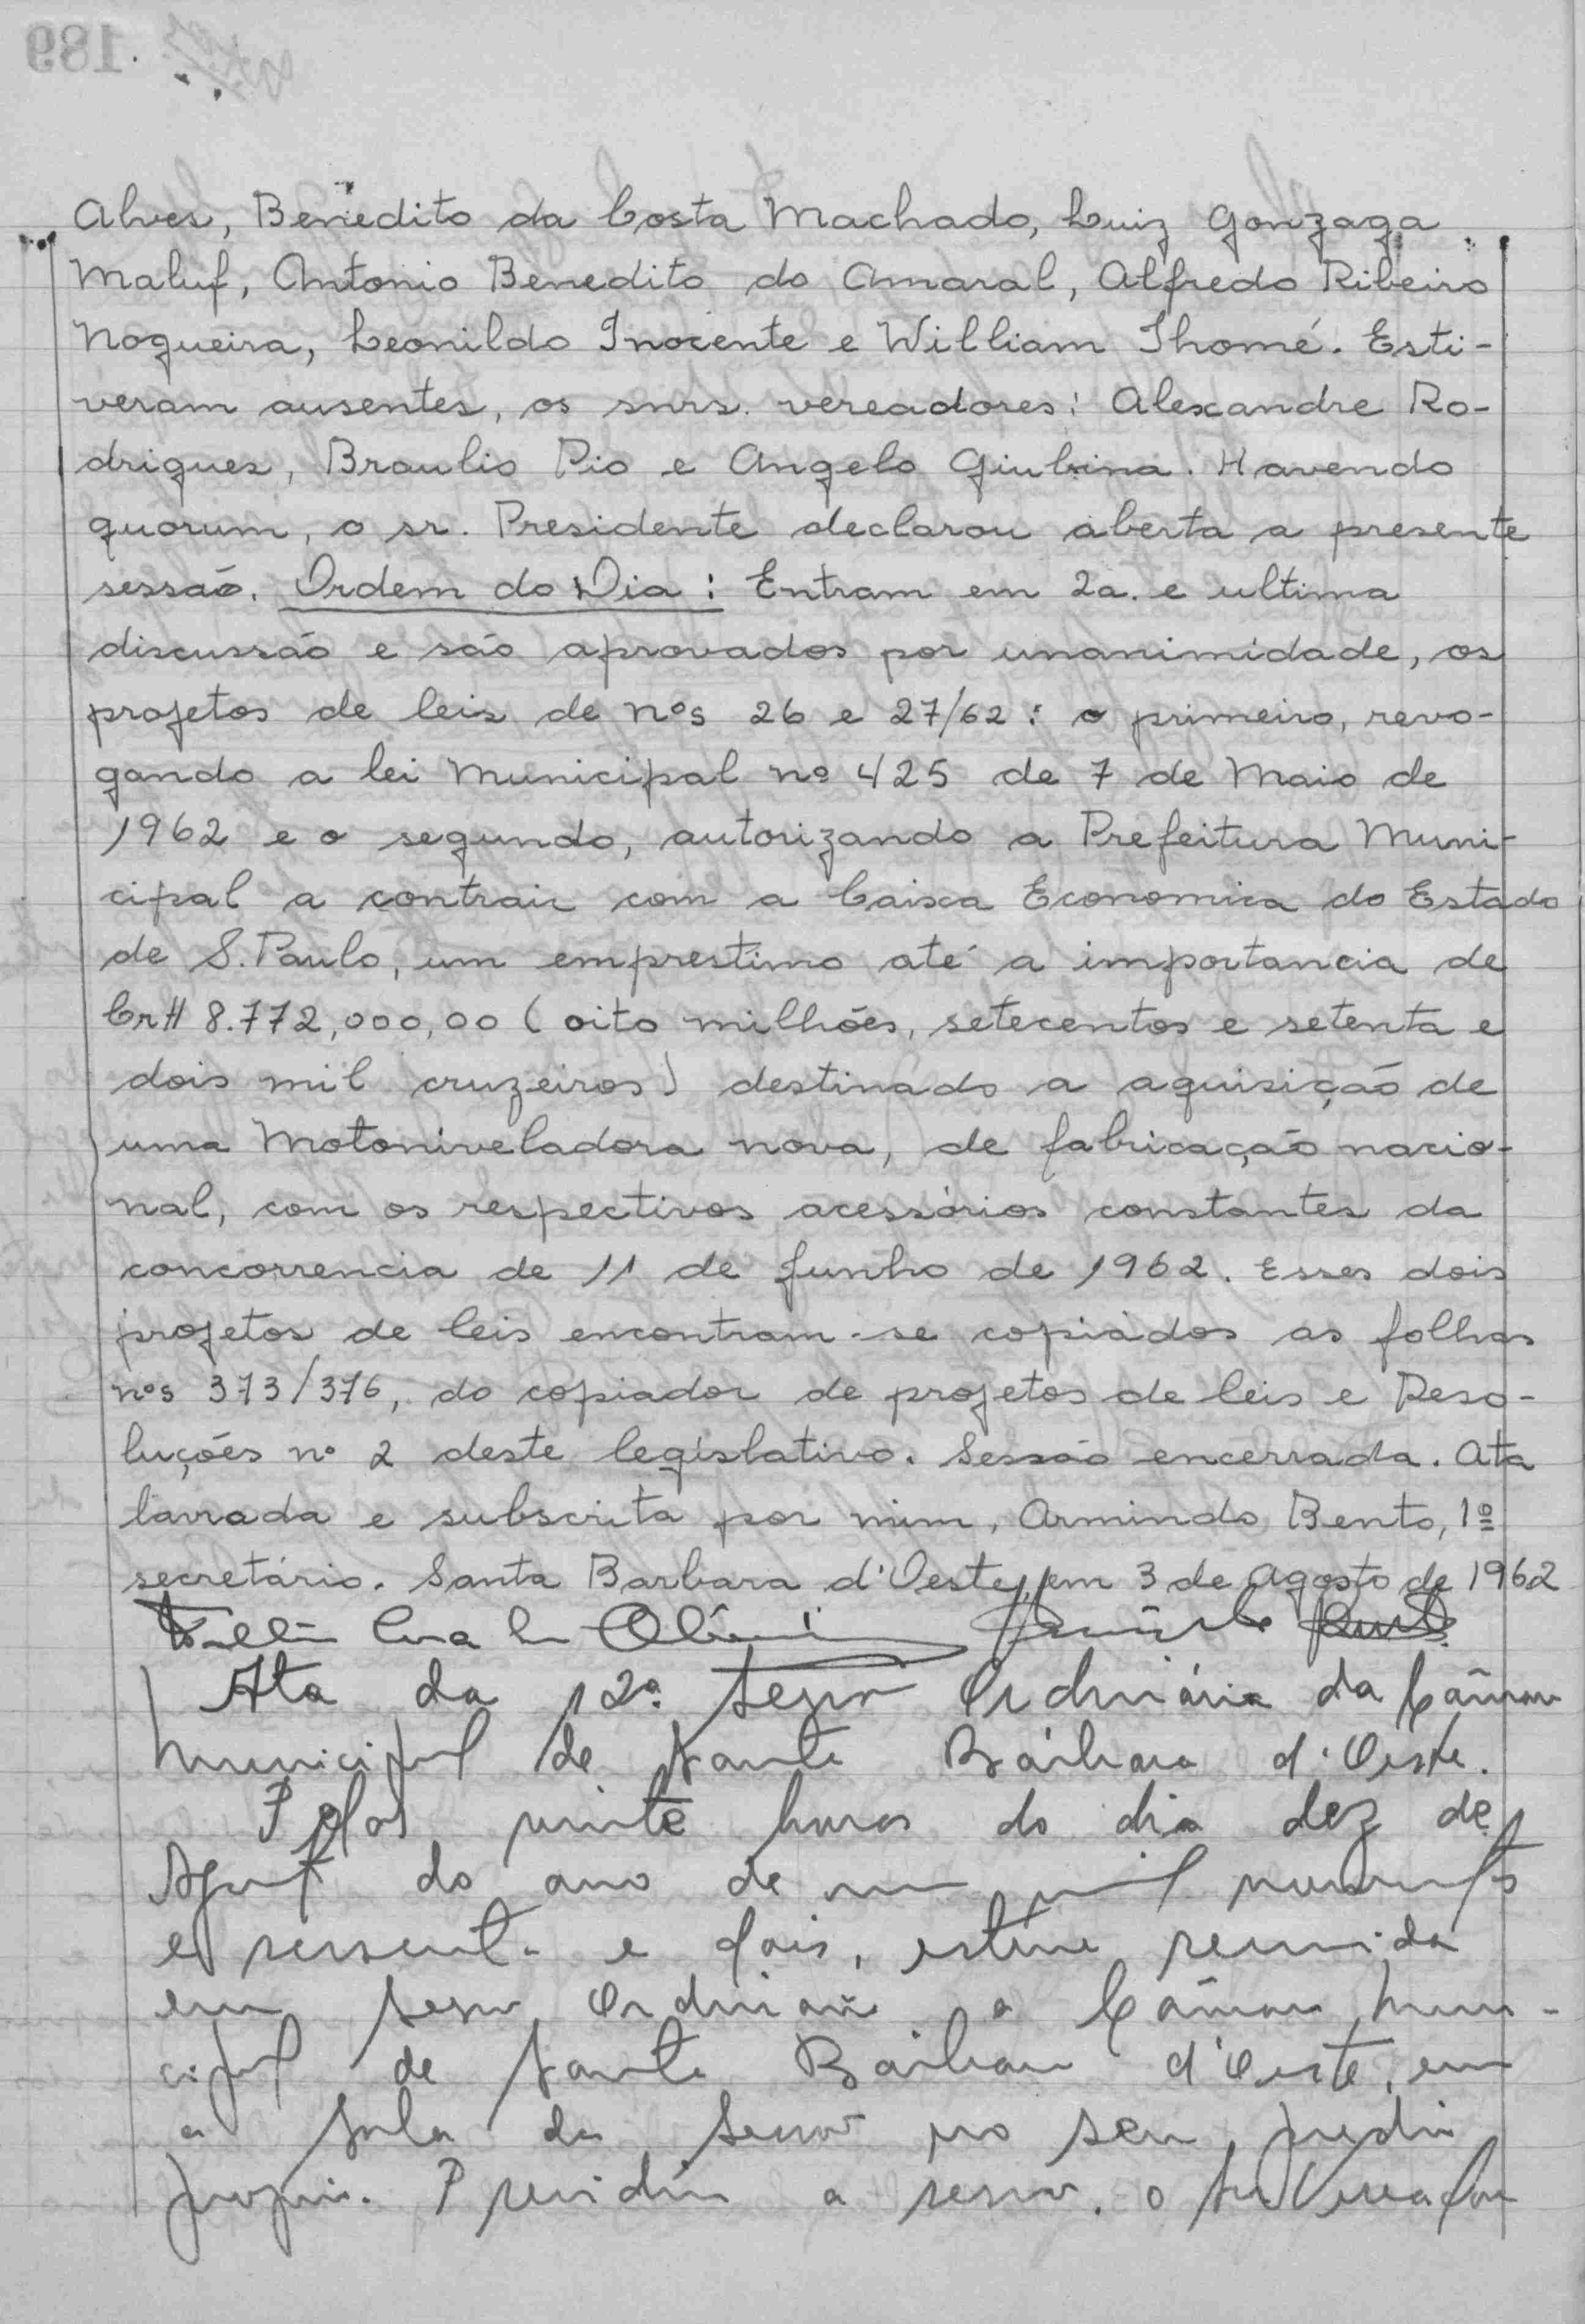 Alves, Benedito da Costa Machado, Luiz Gonzaga
Maluf, Antonio Benedito do Amaral, Alfredo Ribeiro
Nogueira, Leonildo Inocente e William Thomé. Esti-
veram ausentes, os snrs. vereadores: Alexandre Ro-
drigues, Braulio Pio e Angelo Giubina. Havendo
quorum, o sr. Presidente declarou aberta a presente
sessão. Ordem do Dia: Entram em 2a. e ultima
discussão e são aprovados por unanimidade, os
projetos de leis de nos 26 e 27/62: o primeiro, revo-
gando a lei Municipal nº 425 de 7 de Maio de
1962 e o segundo, autorizando a Prefeitura Muni-
cipal a contrair com a Caixa Economica do Estado
de S. Paulo, um emprestimo até a importancia de
Cr$ 8.772,000,00 (oito milhões, setecentos e setenta e
dois mil cruzeiros) destinado a aquisição de
uma Motoniveladora nova, de fabricação nacio-
nal, com os respectivos acessórios constantes da
concorrencia de 11 de Junho de 1962. Esses dois
projetos de leis encontram-se copiados as folhas
nos 373/376, do copiador de projetos de leis e Reso-
luções nº 2 deste legislativo. Sessão encerrada. Ata
lavrada e subscrita por mim, Armindo Bento, 1º
secretário. Santa Barbara d'Oeste, em 3 de Agosto de 1962
Ata da 12ª Sessão Ordinária da Câmara
Municipal de Santa Bárbara d'Oeste.
Pelas vinte horas do dia dez de
Agosto do ano de um mil novecentos
e sessenta e dois, esteve reunida
em sessão Ordinária a Câmara Muni-
cipal de Santa Bárbara d'Oeste, em
a sala da sessão no seu predio
proprio. Presidiu a sessão, o Sr. Vereador
189